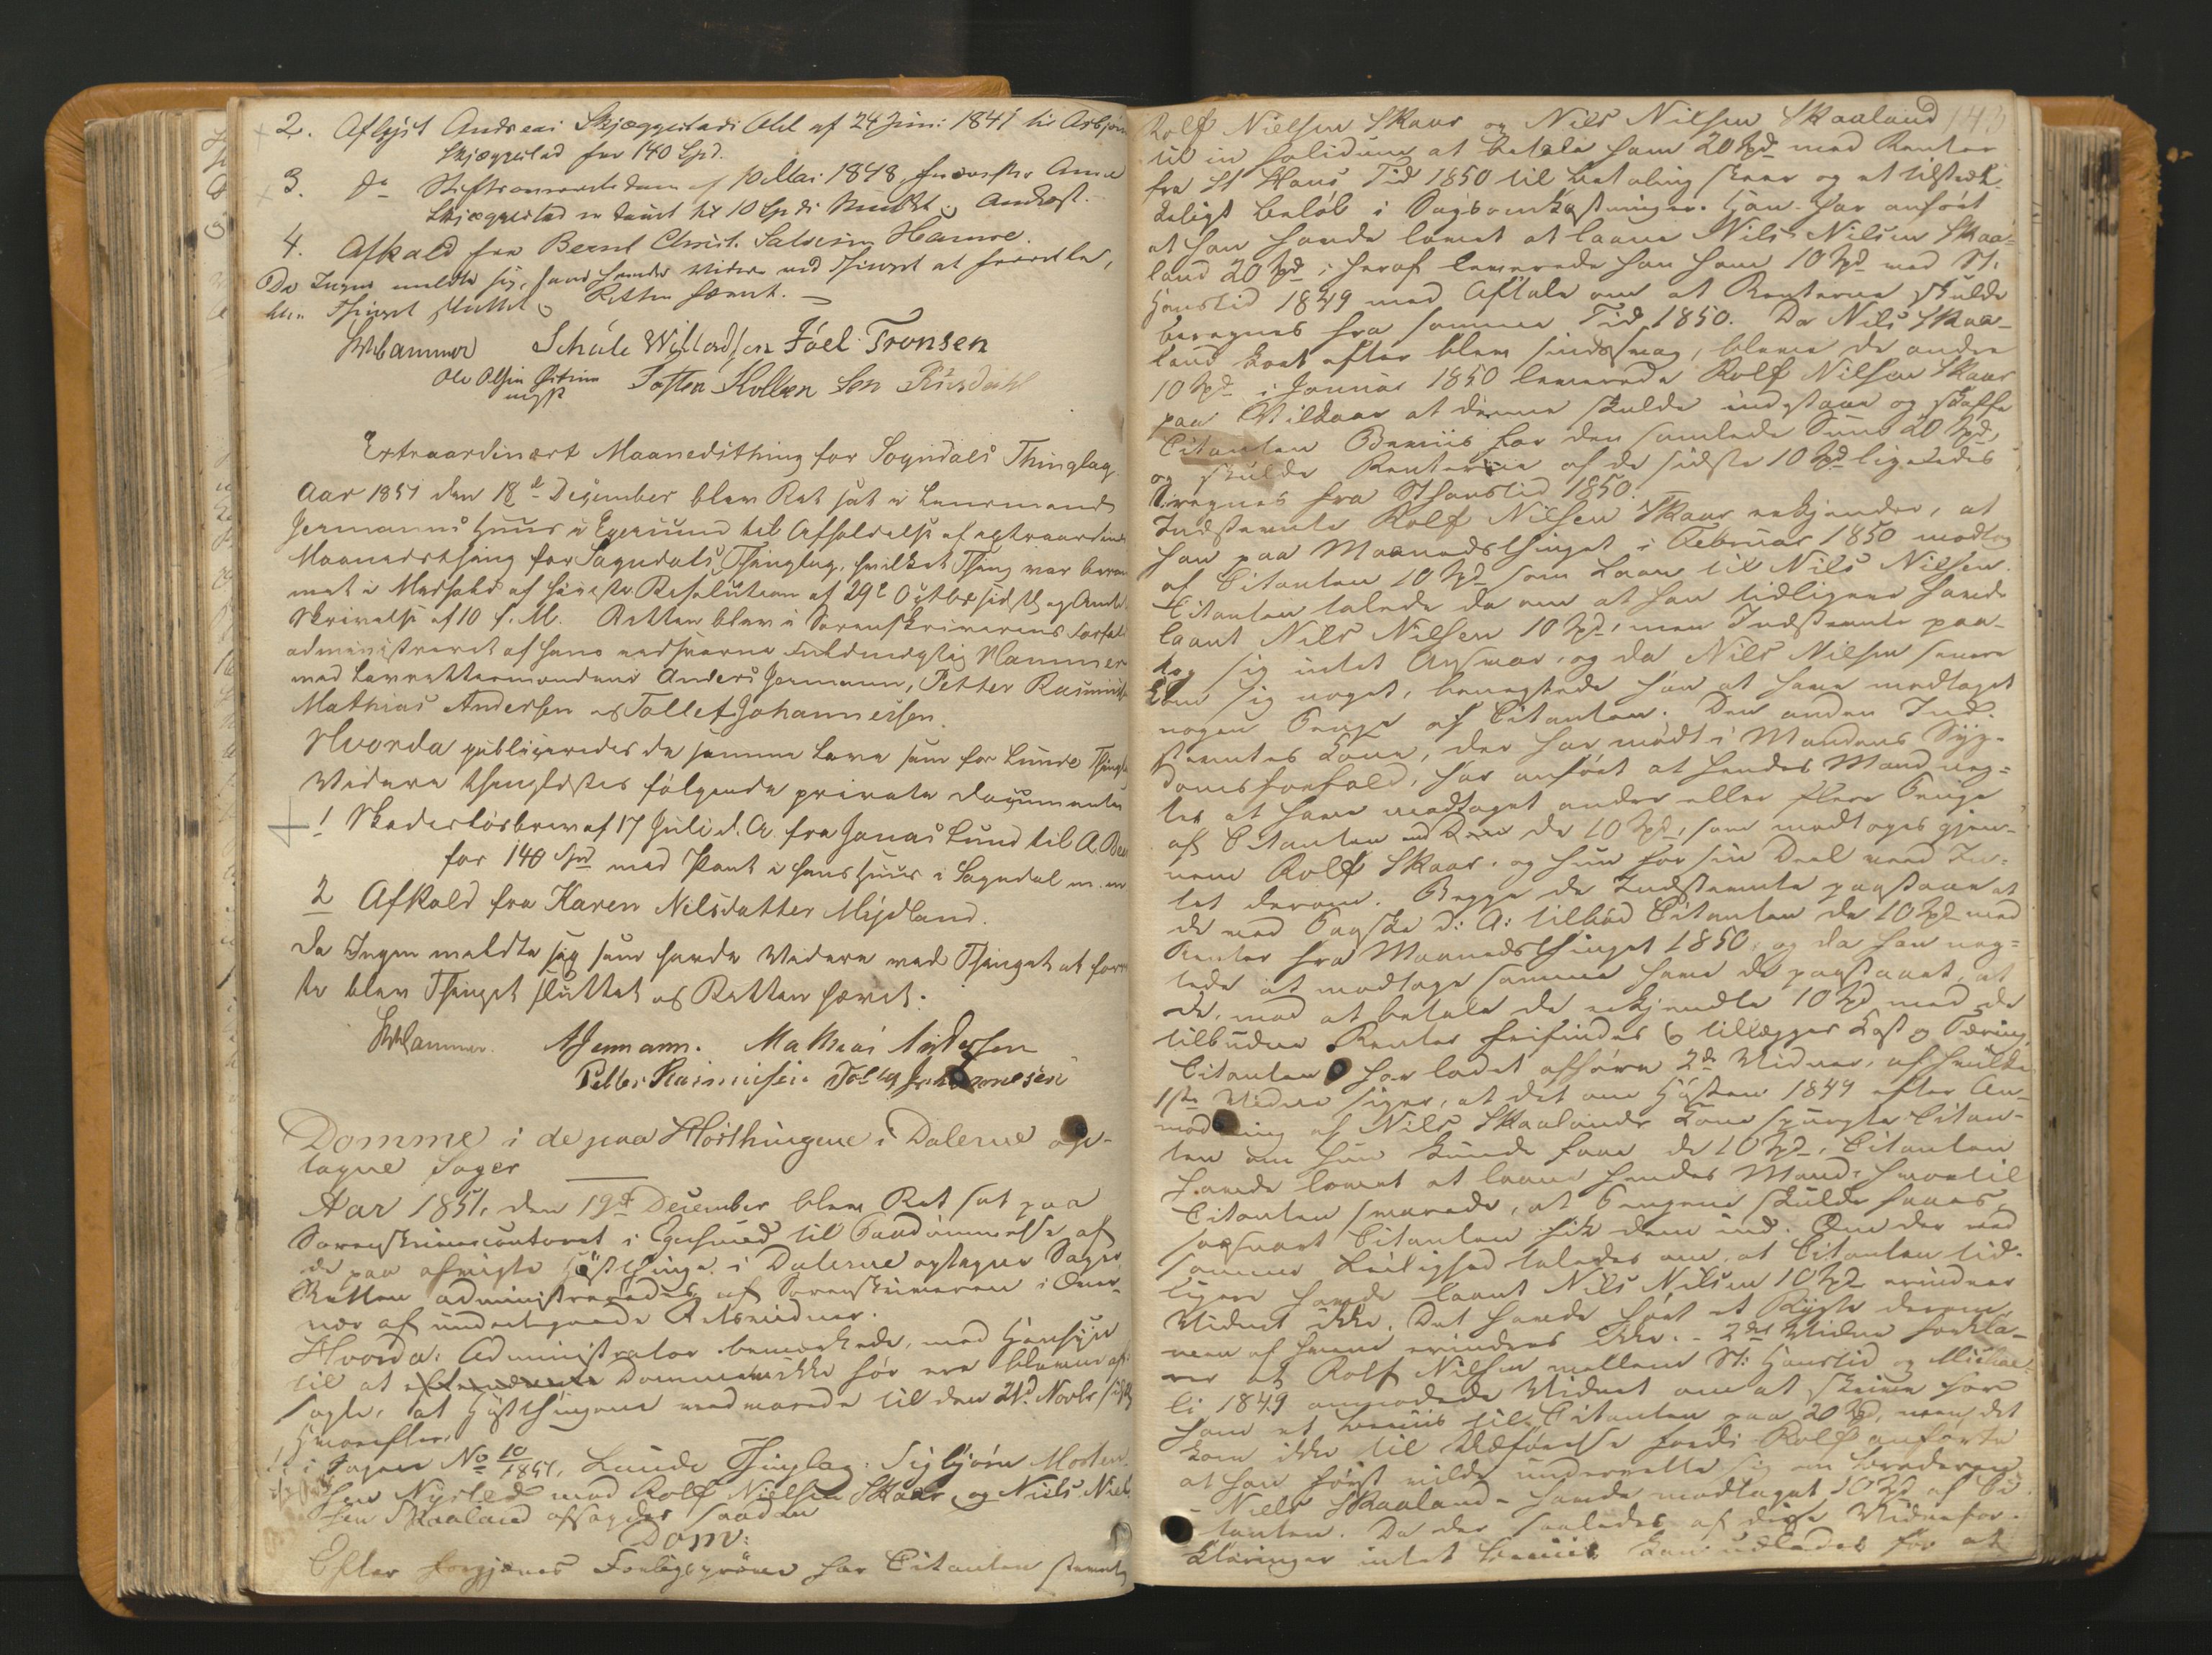 2. Aflyst Andreas Skjæggestads Obl af 24 Juni 1841 til Asbjørn
Skjæggestad for 140 Spd.
3. do Skiftesamrets dom af 10 Mai 1848, hvorefter Anne
Skjæggestad er dømt til 10 Spd i Mulkt
4. Afkald fra Bernt Christ. Salvesen Hamre.
Da Ingen meldte sig, som havde Videre ved Thinget at forrette,
blev Thinget sluttet og Retten hævet. –
Hammer Schule Willadsen Joel Tronsen
Ole Olsen
Tosten Kollien Sen
Extraordinært Maanedsthing for Sogndals Thinglag.
Aar 1851 den 18de December blev Ret sat i Lensmand
Jermanns Huus i Egersund til Afholdelse af extraordinært
Maanedsthing for Sogndals Thinglag, hvilket Thing var beram-
met i Medhold af høieste Resolution af 29de Octbr sidstl og Amts
Skrivelse af 10 f. M. Retten blev i Sorenskriverens Forfald
administreret af hans edsvorne Fuldmægtig Hammer
med Lavrettesmændene Anders Jermann, Petter Rasmussen
Mathias Andersen og Tollef Johannessen.
Hvorda publiceredes de samme Love som for Lunde Thinglag
Videre thinglæstes følgende private Documenter
1 Skadesløsbrev af 17 Juli d. A. fra Jonas Lund til A.
for 140 Spd med Pant i hans Huus i Sogndal m. m
2 Afkald fra Karen Nilsdatter Mydland.
Da Ingen meldte sig som havde Videre ved Thinget at forret-
te blev Thinget sluttet og Retten hævet.
Hammer. AJermann. Mathias Andersen
Petter Rasmussen Tolleg Johannesen
Domme i de paa Høstthingene i Dalerne op-
tagne Sager
Aar 1851, den 19de December blev Ret sat paa
Sorenskrivercontoret i Egersund til Paadømmelse af
de paa afvigte Høstthinge i Dalerne optagne Sager
Retten administreredes af Sorenskriveren i Over-
vær af undertegnede Retsvidner.
Hvorda: Administrator bemærkede, med Hensyn
til at Dommene ikke før ere blevne af-
sagte, at Høstthingene vedvarede til den 21d Novbr sidstl
Hvorefter:
i Sagen No 10/1851, Lunde Thinglag: Sigbjørn Morten-
sen Nysted mod Rolf Nielsen Skaar og Niels Niel-
sen Skaaland afsagdes saadan
Dom:
Efter forgjæves Forligsprøve har Citanten stevnet
143
Rolf Nielsen Skaar og Nils Nilsen Skaaland
til in solidum at betale ham 20 Spd med Renter
fra St Hans Tid 1850 til Betaling skeer og et tilstræk-
keligt Beløb i Sagsomkostninger. Han har anført
at han havde lovet at laane Nils Nilsen Skaa-
land 20 Spd; heraf leverede han ham 10 Spd ved St.
Hanstid 1849 med Aftale om at Renterne skulde
beregnes fra samme Tid 1850. Da Nils Skaa-
land kort efter blev sindssvag, bleve de andre
10 Spd i Januar 1850 leverede Rolf Nilsen Skaar
paa Vilkaar at denne skulde indestaae og skaffe
Citanten Beviis for den samlede Sum 20 Spd,
og skulde Renterne af de sidste 10 Spd ligeledes
beregnes fra Sthanstid 1850.
Indstevnte Rolf Nilsen Skaar erkjender, at
han paa Maanedsthinget i Februar 1850 modtog
af Citanten 10 Spd som Laan til Nils Nilsen.
Citanten talede da om at han tidligere havde
laant Nils Nilsen 10 Spd, men Indstevnte paa-
tog sig intet Ansvar, og da Nils Nilsen senere
kom sig noget, benegtede han at have modtaget
nogen Penge af Citanten. Den anden Ind-
stevntes Kone, der har mødt i Mandens Syg-
domsforfald, har anført at hendes Mand neg-
ter at have modtaget andre eller flere Penge
af Citanten end de 10 Spd, som modtoges gjen-
nem Rolf Skaar, og hun for sin Deel veed In-
tet derom. Begge de Indstevnte paastaae at
de ved Paaske d: A: tilbød Citanten de 10 Spd med
Renter fra Maanedsthinget 1850, og da han neg-
tede at modtage samme have de paastaaet, at
de, mod at betale de erkjendte 10 Spd med de
tilbudne Renter frifindes og tillægges Kost og Tæring.
Citanten har ladet afhøre 2de Vidner, af hvilke
1ste Vidne siger, at det om Høsten 1849 efter An-
modning af Nils Skaalands Kone spurgte Citan-
ten om hun kunde faae de 10 Spd, Citanten
havde lovet at laane hendes Mand, hvortil
Citanten svarede, at Pengene skulde faaes,
saasnart Citanten fik dem ind. Om der ved
samme Leilighed taledes om, at Citanten tid-
ligere havde laant Nils Nilsen 10 Spd erindrer
Vidnet ikke. Det havde hørt et Rygte derom,
men af hvem erindres ikke. – 2det Vidne forkla-
rer at Rolf Nilsen mellem St: Hanstid og Michae-
li 1849 anmodede Vidnet om at skrive for
ham et Beviis til Citanten paa 20 Spd, men det
kom ikke til Udførelse fordi Rolf anførte
at han først vilde underrette sig om Broderen
– Niels Skaaland – havde modtaget 10 Spd af Ci-
tanten. Da der saaledes af disse Vidnefor-
klaringer intet Beviis kan udledes for at